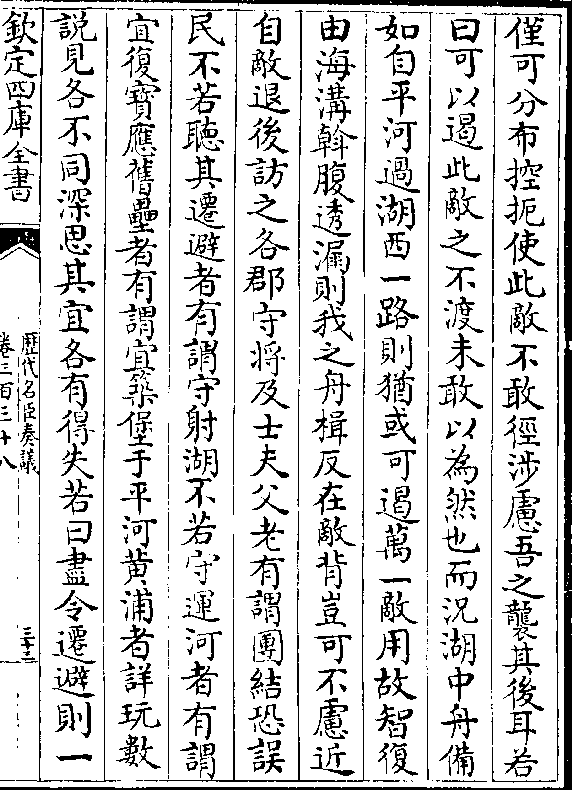 僅可分布控扼使此敵不敢徑涉慮吾之襲其後耳若
曰可以遏此敵之不渡未敢以為然也而況湖中舟備
如自平河過湖西一路則猶或可遏萬一敵用故智復
由海溝斡腹透漏則我之舟楫反在敵背豈可不慮近
自敵退後訪之各郡守將及士夫父老有謂團結恐誤
民不若聽其遷避者有謂守射湖不若守運河者有謂
宜復寶應舊壘者有謂宜築堡于平河黄浦者詳玩數
說見各不同深思其宜各有得失若曰盡令遷避則一
欽定四庫全書
歷代名臣奏議
卷三百三十八
三十三